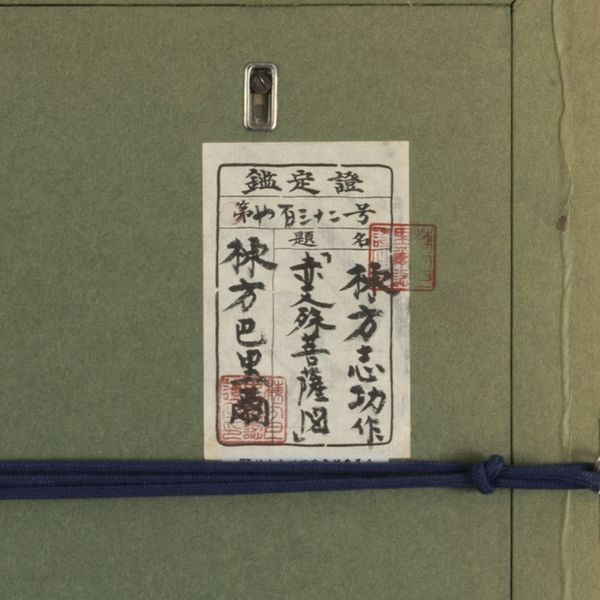 鑑定證
第七百三十二号
題名
棟方志功作
「赤文殊菩薩図」
棟方巴里爾